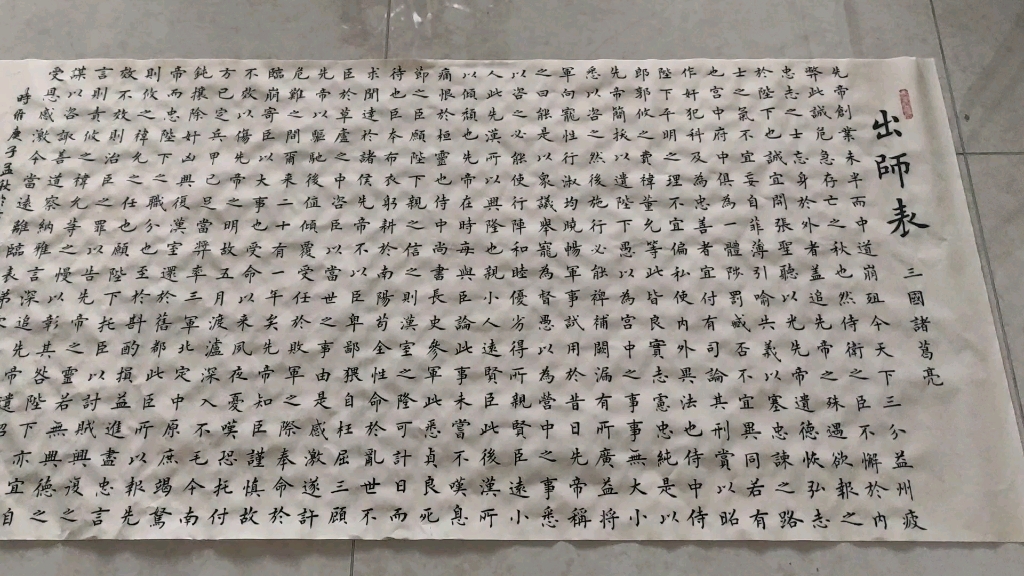 出師表
三國諸葛亮
先帝創業未半而中道崩殂今天下三分益州疲
弊此誠危急存亡之秋也然侍衛之臣不懈於內
忠志之士忘身於外者盖追先帝之殊遇欲報之
於陛下也誠宜開張聖聽以光先帝遺德恢弘志
士之氣不宜妄自菲薄引喻失義以塞忠諫之路
也宮中府中俱為一體陟罰臧否不宜異同若有
作奸犯科及為忠善者宜付有司論其刑賞以昭
陛下平明之理不宜偏私使內外異法也侍中侍
郎郭攸之費禕董允等此皆良實志慮忠純是以
先帝簡拔以遺陛下愚以為宮中之事事無大小
悉以咨之然後施行必能裨補闕漏有所廣益將
軍向寵性行淑均曉暢軍事試用於昔日先帝稱
之曰能是以衆議舉寵為督愚以為營中之事悉
以咨之必能使行陣和睦優劣得所親賢臣遠小
人此先漢所以興隆也親小人遠賢臣此後漢所
以傾頹也先帝在時每與臣論此事未嘗不嘆息
痛恨於桓靈也侍中尚書長史參軍此悉貞良死
節之臣願陛下親之信之則漢室之隆可計日而
待也臣本布衣躬耕於南陽苟全性命於亂世不
求聞達於諸侯先帝不以臣卑鄙猥自枉屈三顧
臣於草廬之中咨臣以當世之事由是感激遂許
先帝以驅馳後值傾覆受任於敗軍之際奉命於
危難之間爾來二十有一年矣先帝知臣謹慎故
臨崩寄臣以大事也受命以來夙夜憂嘆恐托付
不效以傷先帝之明故五月渡瀘深入不毛今南
方已定兵甲已足當獎率三軍北定中原庶竭駑
鈍攘除奸凶興復漢室還於舊都此臣所以報先
帝而忠陛下之職分也至於斟酌損益進盡忠言
則攸之禕允之任也願陛下托臣以討賊興復之
效不效則治臣之罪以告先帝之靈若無興德之
言則責攸之禕允等之慢以彰其咎陛下亦宜自
謀以諮諏善道察納雅言深追先帝遺詔
受恩感激今當遠離臨表
時在庚子孟秋於